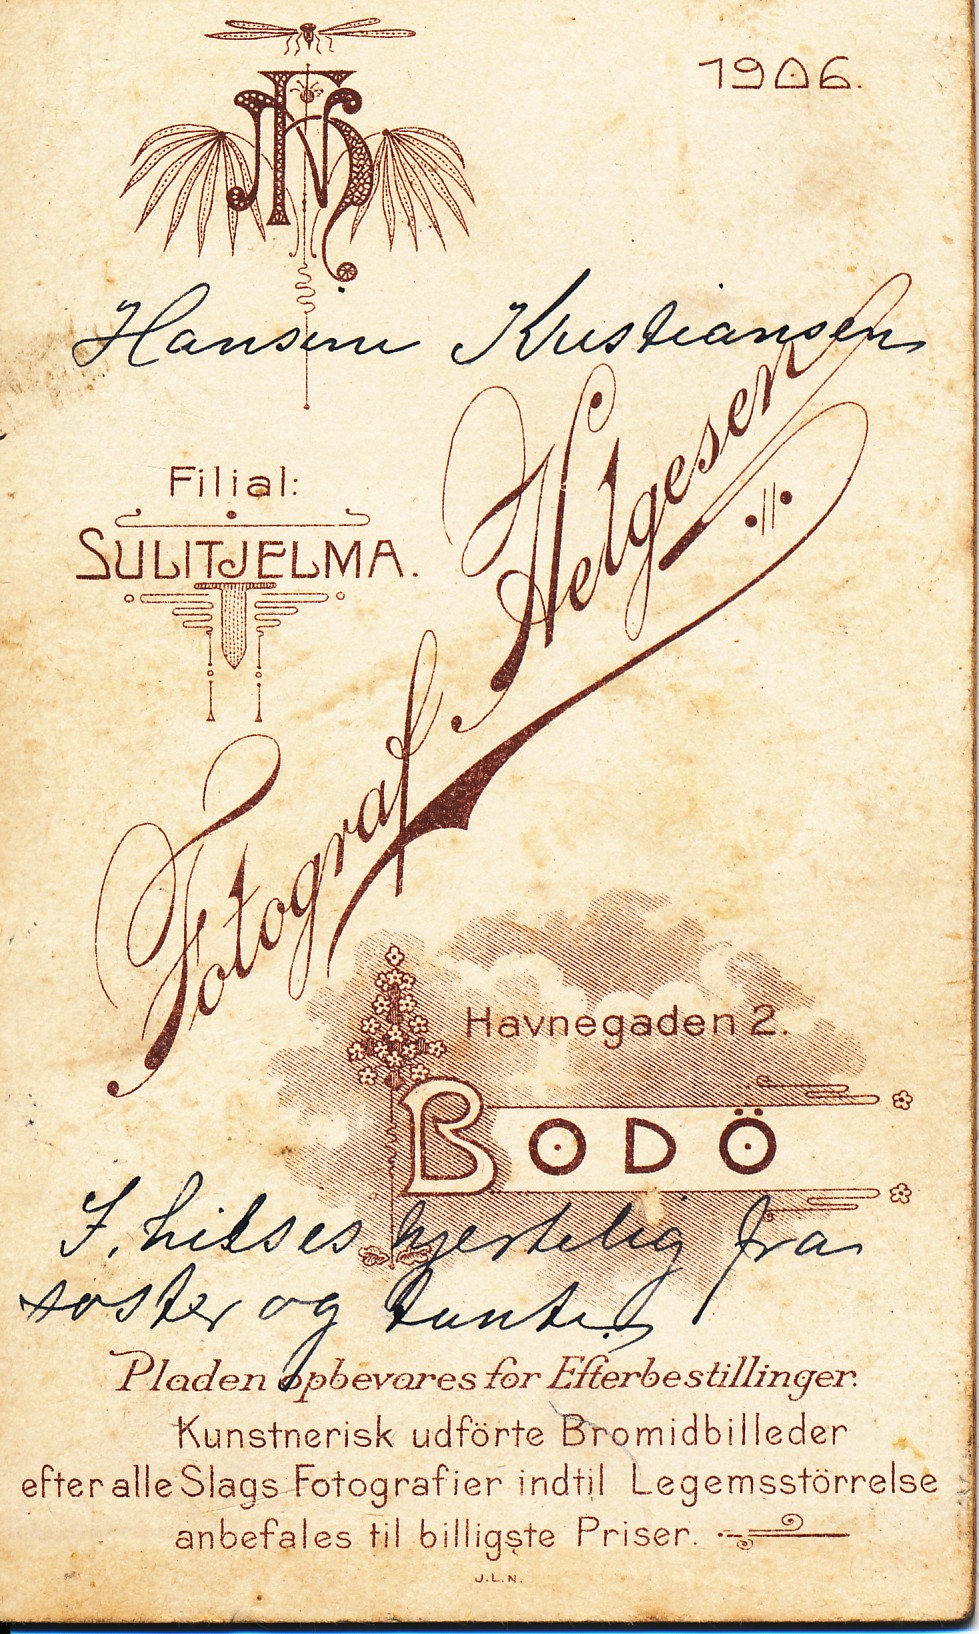 1906.
Hansine Kristiansen
Filial:
SULITJELMA.
Fotograf Helgesen
Havnegaden 2.
BODÖ
I, hilses hjertelig fra
søster og tante.
Pladen opbevares for Efterbestillinger.
Kunstnerisk udförte Bromidbilleder
efter alle Slags Fotografier indtil Legemsstörrelse
anbefales til billigste Priser.
J.L.N.